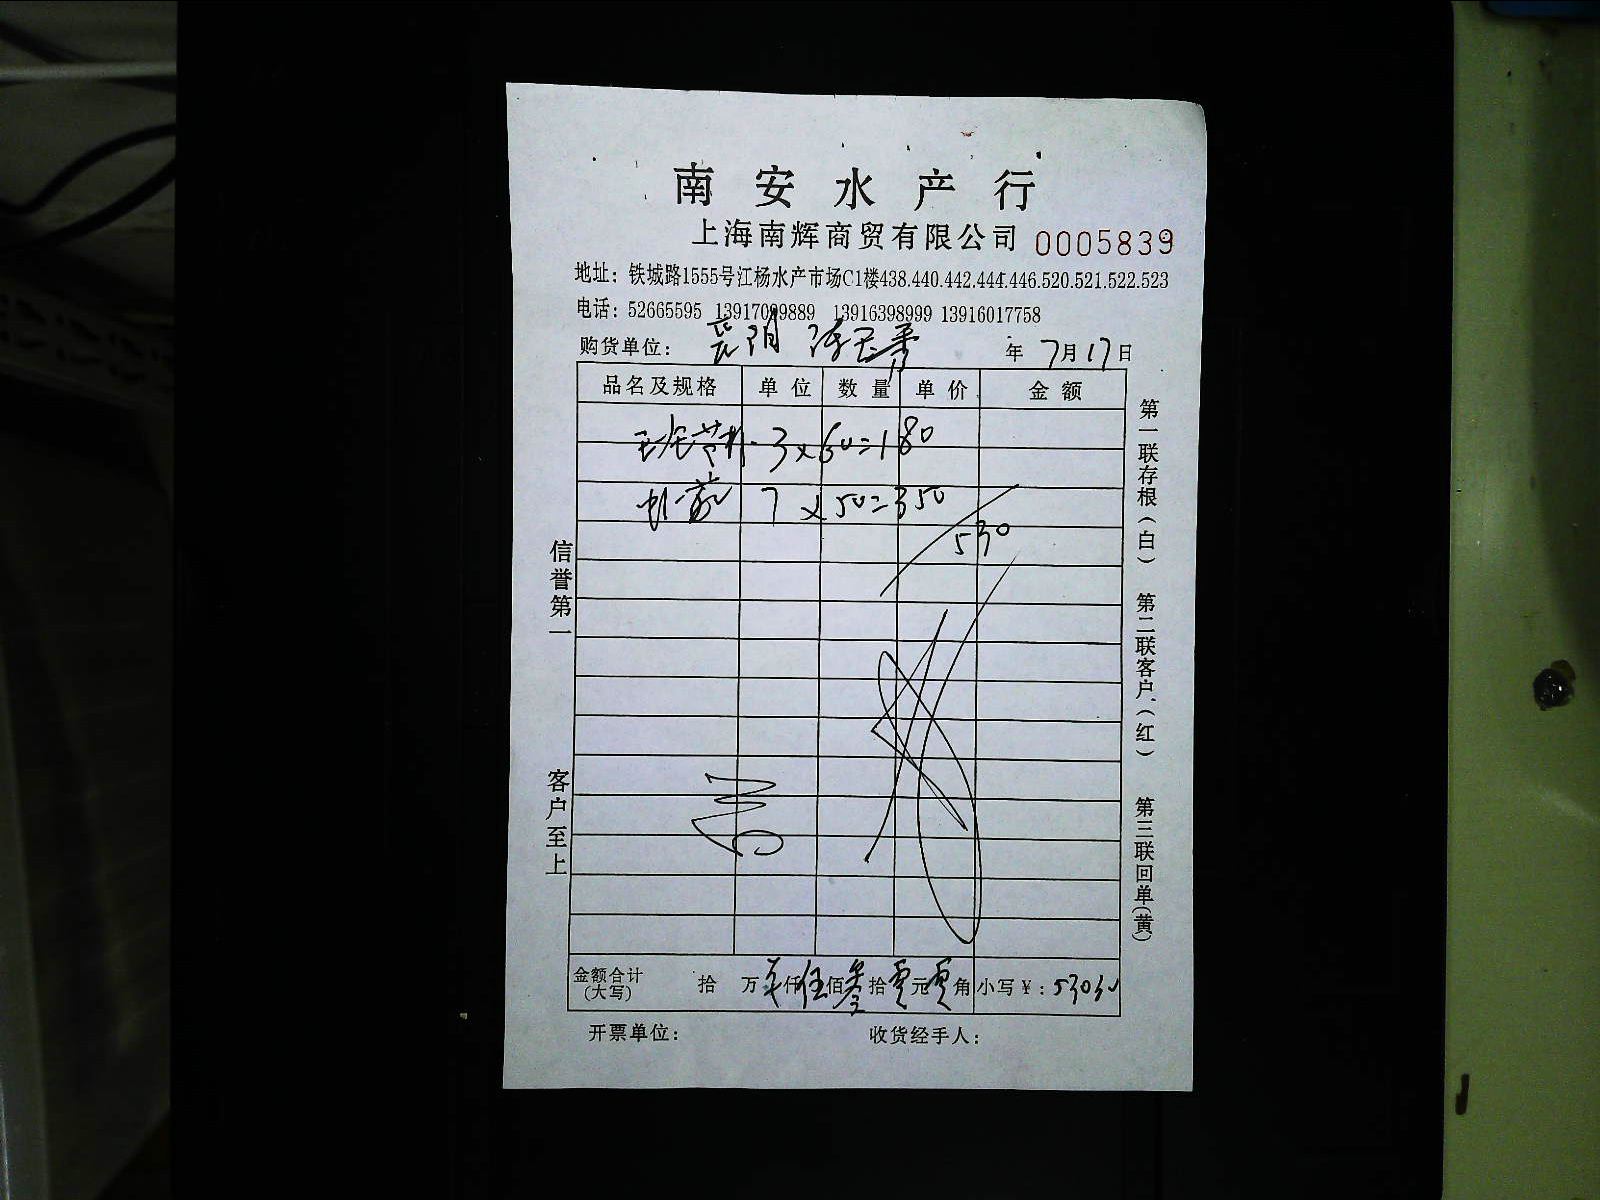 南安水产行
上海南辉商贸有限公司 0005839
地址：铁城路1555号江杨水产市场C1楼438.440.442.444.446.520.521.522.523
电话：52665595 13917099889 13916398999 13916017758
购货单位： 年 7月17日
品名及规格 单位 数量 单价 金额
3×60=180
7×50=350
530
信誉第一
客户至上
第一联存根（白）
第二联客户（红）
第三联回单（黄）
金额合计（大写） 拾 万 仟伍佰叁拾零元零角 小写￥：530元
开票单位： 收货经手人：